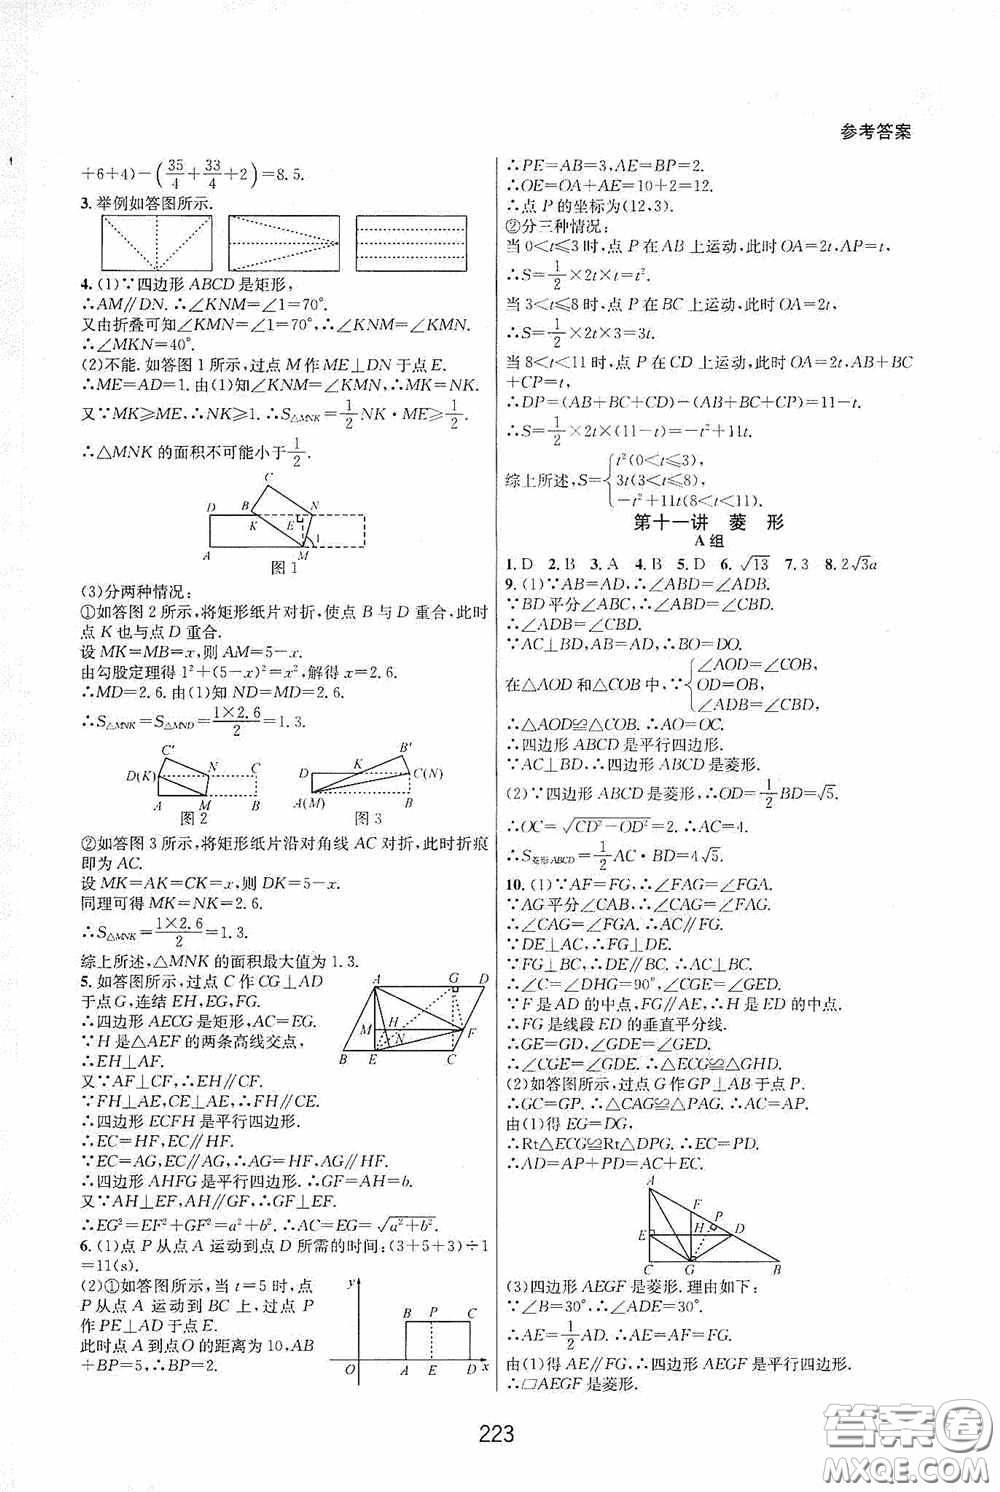 参考答案
+6+4)-(35/4+33/4+2)=8.5.
3. 举例如答图所示.
4. (1)∵四边形 ABCD 是矩形,
∴AM∥DN. ∴∠KNM=∠1=70°.
又由折叠可知∠KMN=∠1=70°,∴∠KNM=∠KMN.
∴∠MKN=40°.
(2)不能. 如答图 1 所示,过点 M 作 ME⊥DN 于点 E.
∴ME=AD=1. 由(1)知∠KNM=∠KMN,∴MK=NK.
又∵MK⩾ME,∴NK⩾1. ∴S△MNK=1/2 NK·ME⩾1/2.
∴△MNK 的面积不可能小于1/2.
C
D B K E N
A M 1
图 1
(3)分两种情况:
①如答图 2 所示,将矩形纸片对折,使点 B 与 D 重合,此时
点 K 也与点 D 重合.
设 MK=MB=x,则 AM=5-x.
由勾股定理得 1²+(5-x)²=x²,解得 x=2.6.
∴MD=2.6. 由(1)知 ND=MD=2.6.
∴S△MNK=S△MND=1×2.6/2=1.3.
C′ B′
D(K) N C D K C(N)
A M B A(M) B
图 2 图 3
②如答图 3 所示,将矩形纸片沿对角线 AC 对折,此时折痕
即为 AC.
设 MK=AK=CK=x,则 DK=5-x.
同理可得 MK=NK=2.6.
∴S△MNK=1×2.6/2=1.3.
综上所述,△MNK 的面积最大值为 1.3.
5. 如答图所示,过点 C 作 CG⊥AD
于点 G,连结 EH,EG,FG.
∴四边形 AECG 是矩形,AC=EG.
∵H 是△AEF 的两条高线交点,
∴EH⊥AF.
又∵AF⊥CF,∴EH∥CF.
∵FH⊥AE,CE⊥AE,∴FH∥CE.
∴四边形 ECFH 是平行四边形.
∴EC=HF,EC∥HF.
∵EC=AG,EC∥AG,∴AG=HF,AG∥HF.
∴四边形 AHFG 是平行四边形. ∴GF=AH=b.
又∵AH⊥EF,AH∥GF,∴GF⊥EF.
∴EG²=EF²+GF²=a²+b². ∴AC=EG=√(a²+b²).
A G D
M H F
N
B E C
6. (1)点 P 从点 A 运动到点 D 所需的时间:(3+5+3)÷1
=11(s).
(2)①如答图所示,当 t=5 时,点
P 从点 A 运动到 BC 上,过点 P
作 PE⊥AD 于点 E.
此时点 A 到点 O 的距离为 10,AB
+BP=5,∴BP=2.
y
B P C
O A E D x
∴PE=AB=3,AE=BP=2.
∴OE=OA+AE=10+2=12.
∴点 P 的坐标为(12,3).
②分三种情况:
当 0<t⩽3 时,点 P 在 AB 上运动,此时 OA=2t,AP=t,
∴S=1/2×2t×t=t².
当 3<t⩽8 时,点 P 在 BC 上运动,此时 OA=2t,
∴S=1/2×2t×3=3t.
当 8<t<11 时,点 P 在 CD 上运动,此时 OA=2t,AB+BC
+CP=t,
∴DP=(AB+BC+CD)-(AB+BC+CP)=11-t.
∴S=1/2×2t×(11-t)=-t²+11t.
综上所述,S={t²(0<t⩽3),
3t(3<t⩽8),
-t²+11t(8<t<11).
第十一讲 菱 形
A 组
1. D 2. B 3. A 4. B 5. D 6. √13 7. 3 8. 2√3a
9. (1)∵AB=AD,∴∠ABD=∠ADB.
∵BD 平分∠ABC,∴∠ABD=∠CBD.
∴∠ADB=∠CBD.
∵AC⊥BD,AB=AD,∴BO=DO.
在△AOD 和△COB 中,∵{∠AOD=∠COB,
OD=OB,
∠ADB=∠CBD,
∴△AOD≌△COB. ∴AO=OC.
∴四边形 ABCD 是平行四边形.
∵AC⊥BD,∴四边形 ABCD 是菱形.
(2)∵四边形 ABCD 是菱形,∴OD=1/2 BD=√5.
∴OC=√(CD²-OD²)=2. ∴AC=4.
∴S菱形ABCD=1/2 AC·BD=4√5.
10. (1)∵AF=FG,∴∠FAG=∠FGA.
∵AG 平分∠CAB,∴∠CAG=∠FAG.
∴∠CAG=∠FGA. ∴AC∥FG.
∵DE⊥AC,∴FG⊥DE.
∵FG⊥BC,∴DE∥BC. ∴AC⊥BC.
∴∠C=∠DHG=90°,∠CGE=∠GED.
∵F 是 AD 的中点,FG∥AE,∴H 是 ED 的中点.
∴FG 是线段 ED 的垂直平分线.
∴GE=GD,∠GDE=∠GED.
∴∠CGE=∠GDE. ∴△ECG≌△GHD.
(2)如答图所示,过点 G 作 GP⊥AB 于点 P.
∴GC=GP. ∴△CAG≌△PAG. ∴AC=AP.
由(1)得 EG=DG,
∴Rt△ECG≌Rt△DPG. ∴EC=PD.
∴AD=AP+PD=AC+EC.
A
F P
E H D
C G B
(3)四边形 AEGF 是菱形. 理由如下:
∵∠B=30°,∴∠ADE=30°.
∴AE=1/2 AD. ∴AE=AF=FG.
由(1)得 AE∥FG,∴四边形 AEGF 是平行四边形.
∴▱AEGF 是菱形.
223
答案卷
MXQE.COM